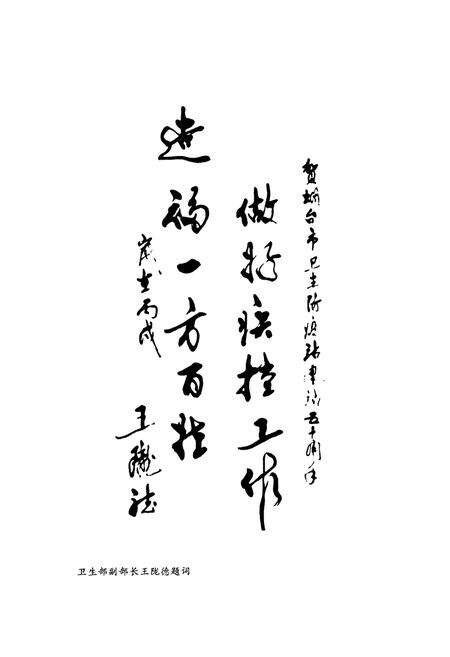 贺烟台市卫生防疫站建站五十周年
做好疾控工作
造福一方百姓
岁在丙戌
王陇德
卫生部副部长王陇德题词